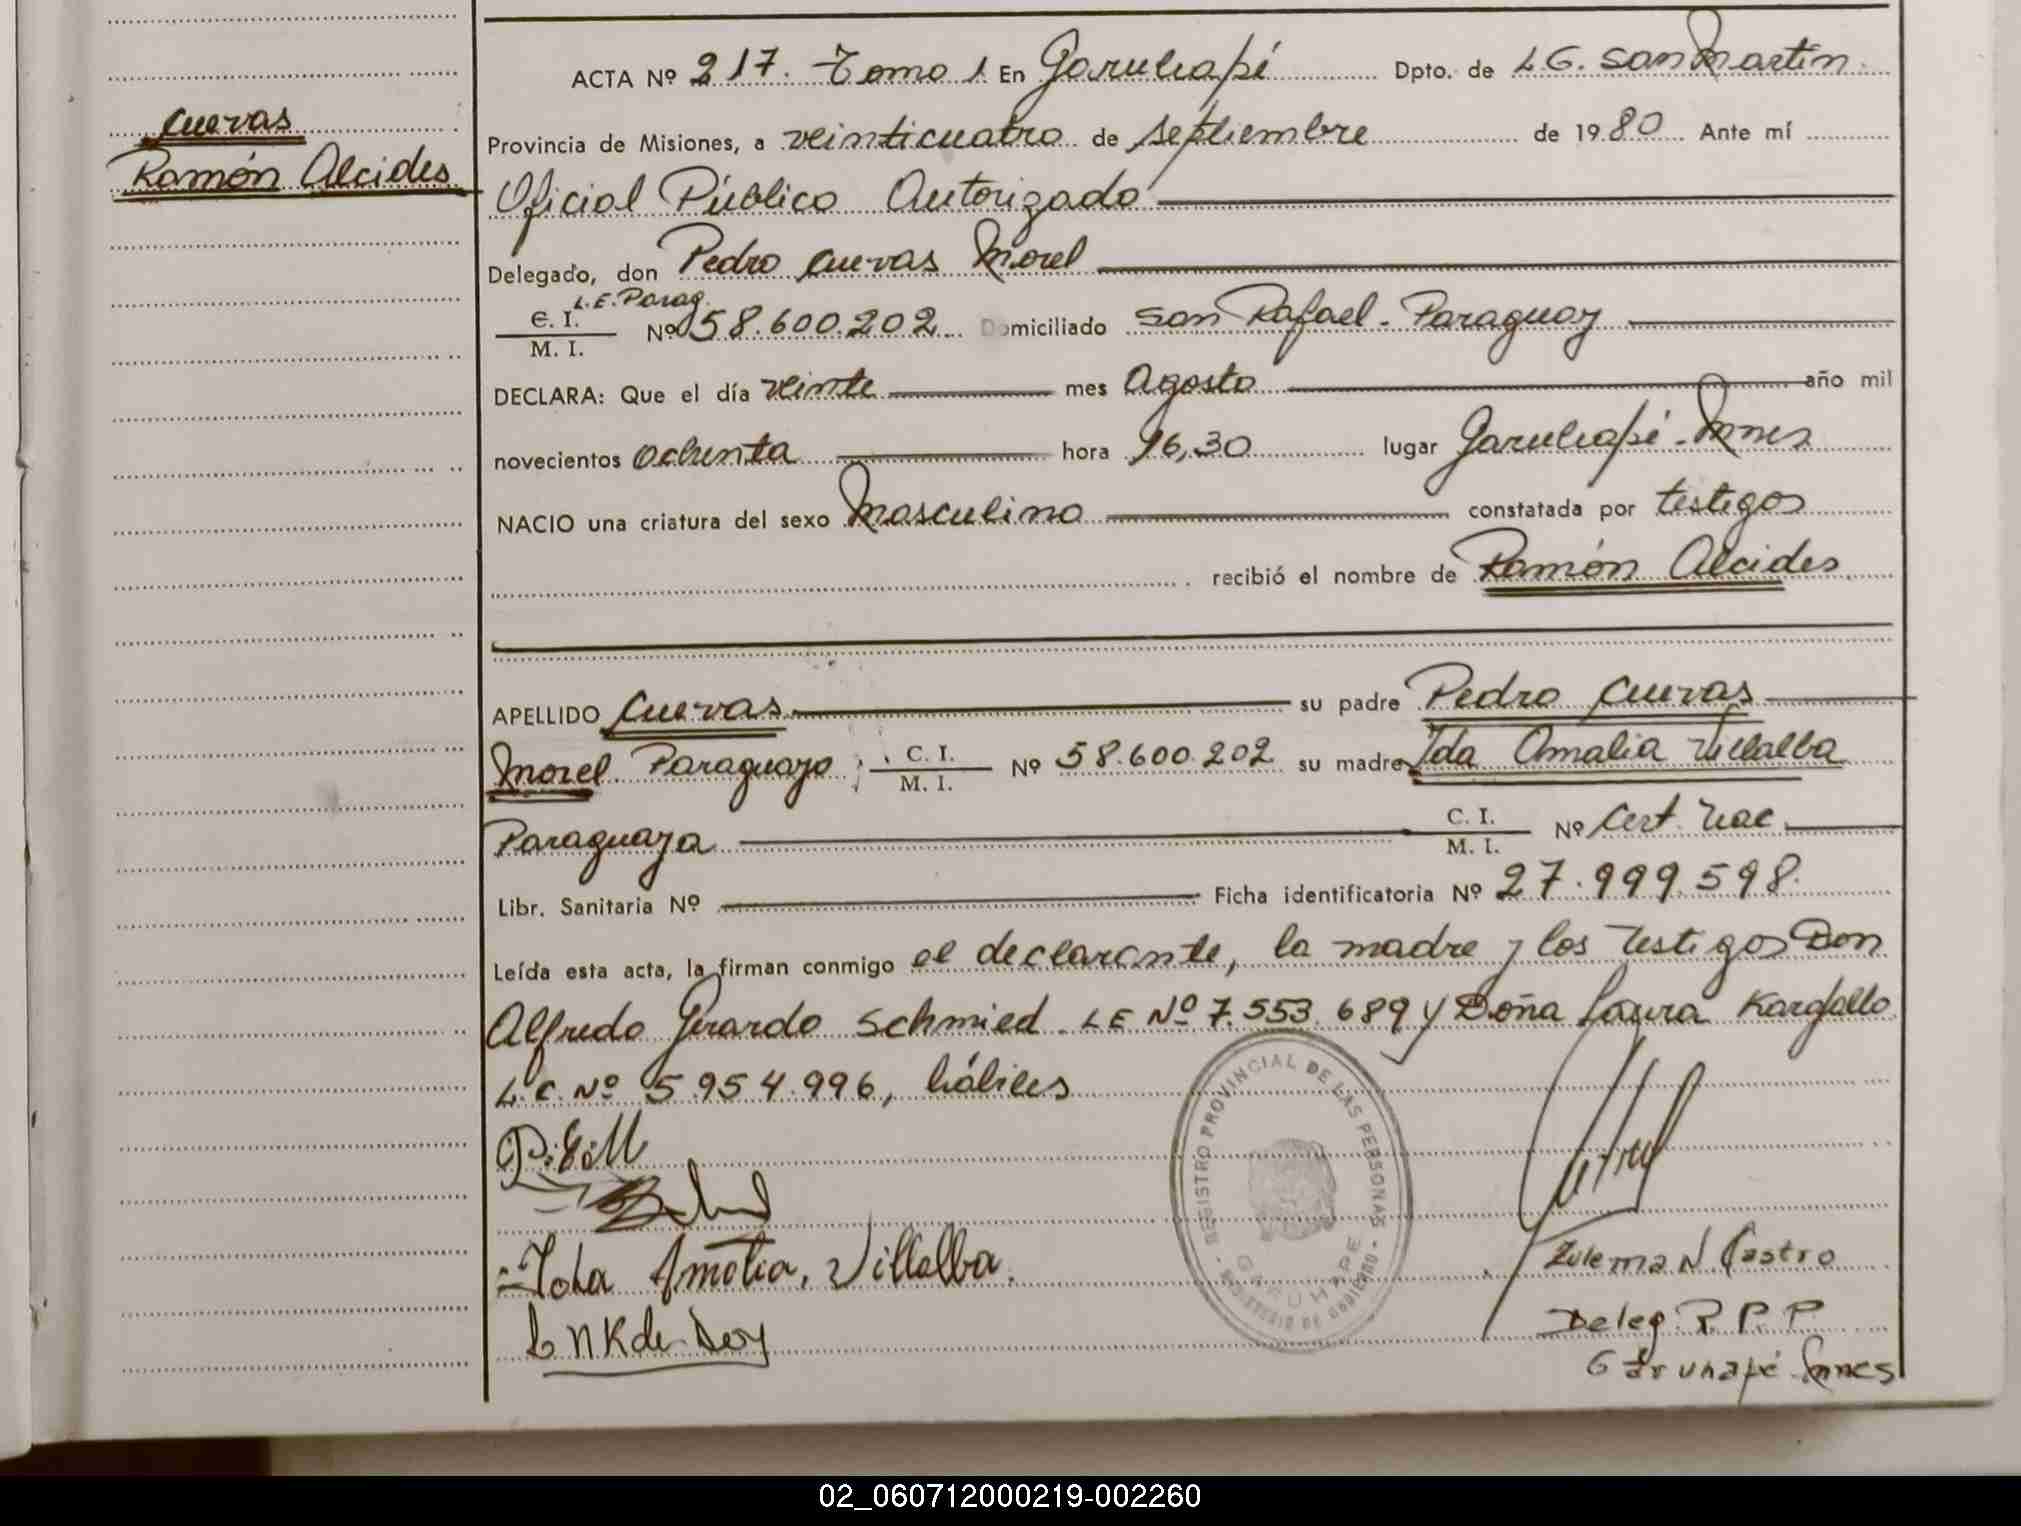 Cuervas
Ramón Alcides
ACTA Nº 217. Tomo 1 En Garuhapé Dpto. de L.G. San Martín
Provincia de Misiones, a veinticuatro de septiembre de 1980 Ante mí
Oficial Público Autorizado
Delegado, don Pedro Cuevas Morel
L.E. Parag.
C. I.
M. I. Nº 58.600.202 Domiciliado San Rafael - Paraguay
DECLARA: Que el día veinte mes Agosto año mil
novecientos ochenta hora 16,30 lugar Garuhapé - Mnes
NACIO una criatura del sexo Masculino constatada por testigos
recibió el nombre de Ramón Alcides
APELLIDO Cuevas su padre Pedro Cuevas
Morel Paraguayo ; C. I.
M. I. Nº 58.600.202 su madre Ida Amalia Villalba
Paraguaya C. I.
M. I. Nº Cert. Nac.
Libr. Sanitaria Nº Ficha identificatoria Nº 27.999.598.
Leída esta acta, la firman conmigo el declarante, la madre y los testigos Don
Alfredo Gerardo Schmied LE Nº 7.553.689 y Doña Laura Kargallo
L.C. Nº 5.954.996, hábiles
P.C.M
Ida Amalia, Villalba.
L N K de
REGISTRO PROVINCIAL DE LAS PERSONAS
GARUHAPE
MINISTERIO DE GOBIERNO
Zulema N Castro
Deleg R. P. P
Garuhapé Mnes
02_060712000219-002260